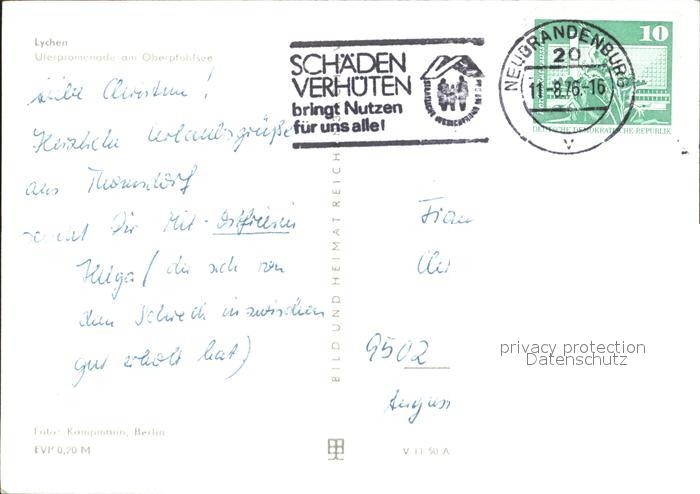 Lychen
Uferpromenade am Oberpfuhlsee
SCHÄDEN
VERHÜTEN
bringt Nutzen
für uns alle!
NEUBRANDENBURG
20
11-8.76-16
v
10
DEUTSCHE DEMOKRATISCHE REPUBLIK
Liebe Christine!
Herzliche Urlaubsgrüße
aus Thomsdorf
sendet Dir Mit-Ostfriesin
Helga (die sich von
dem Schreck inzwischen
gut erholt hat)
Frau
9502
privacy protection
Datenschutz
BILD UND HEIMAT REICH
Foto: Kampmann, Berlin
EVP 0,20 M
V 11 50 A